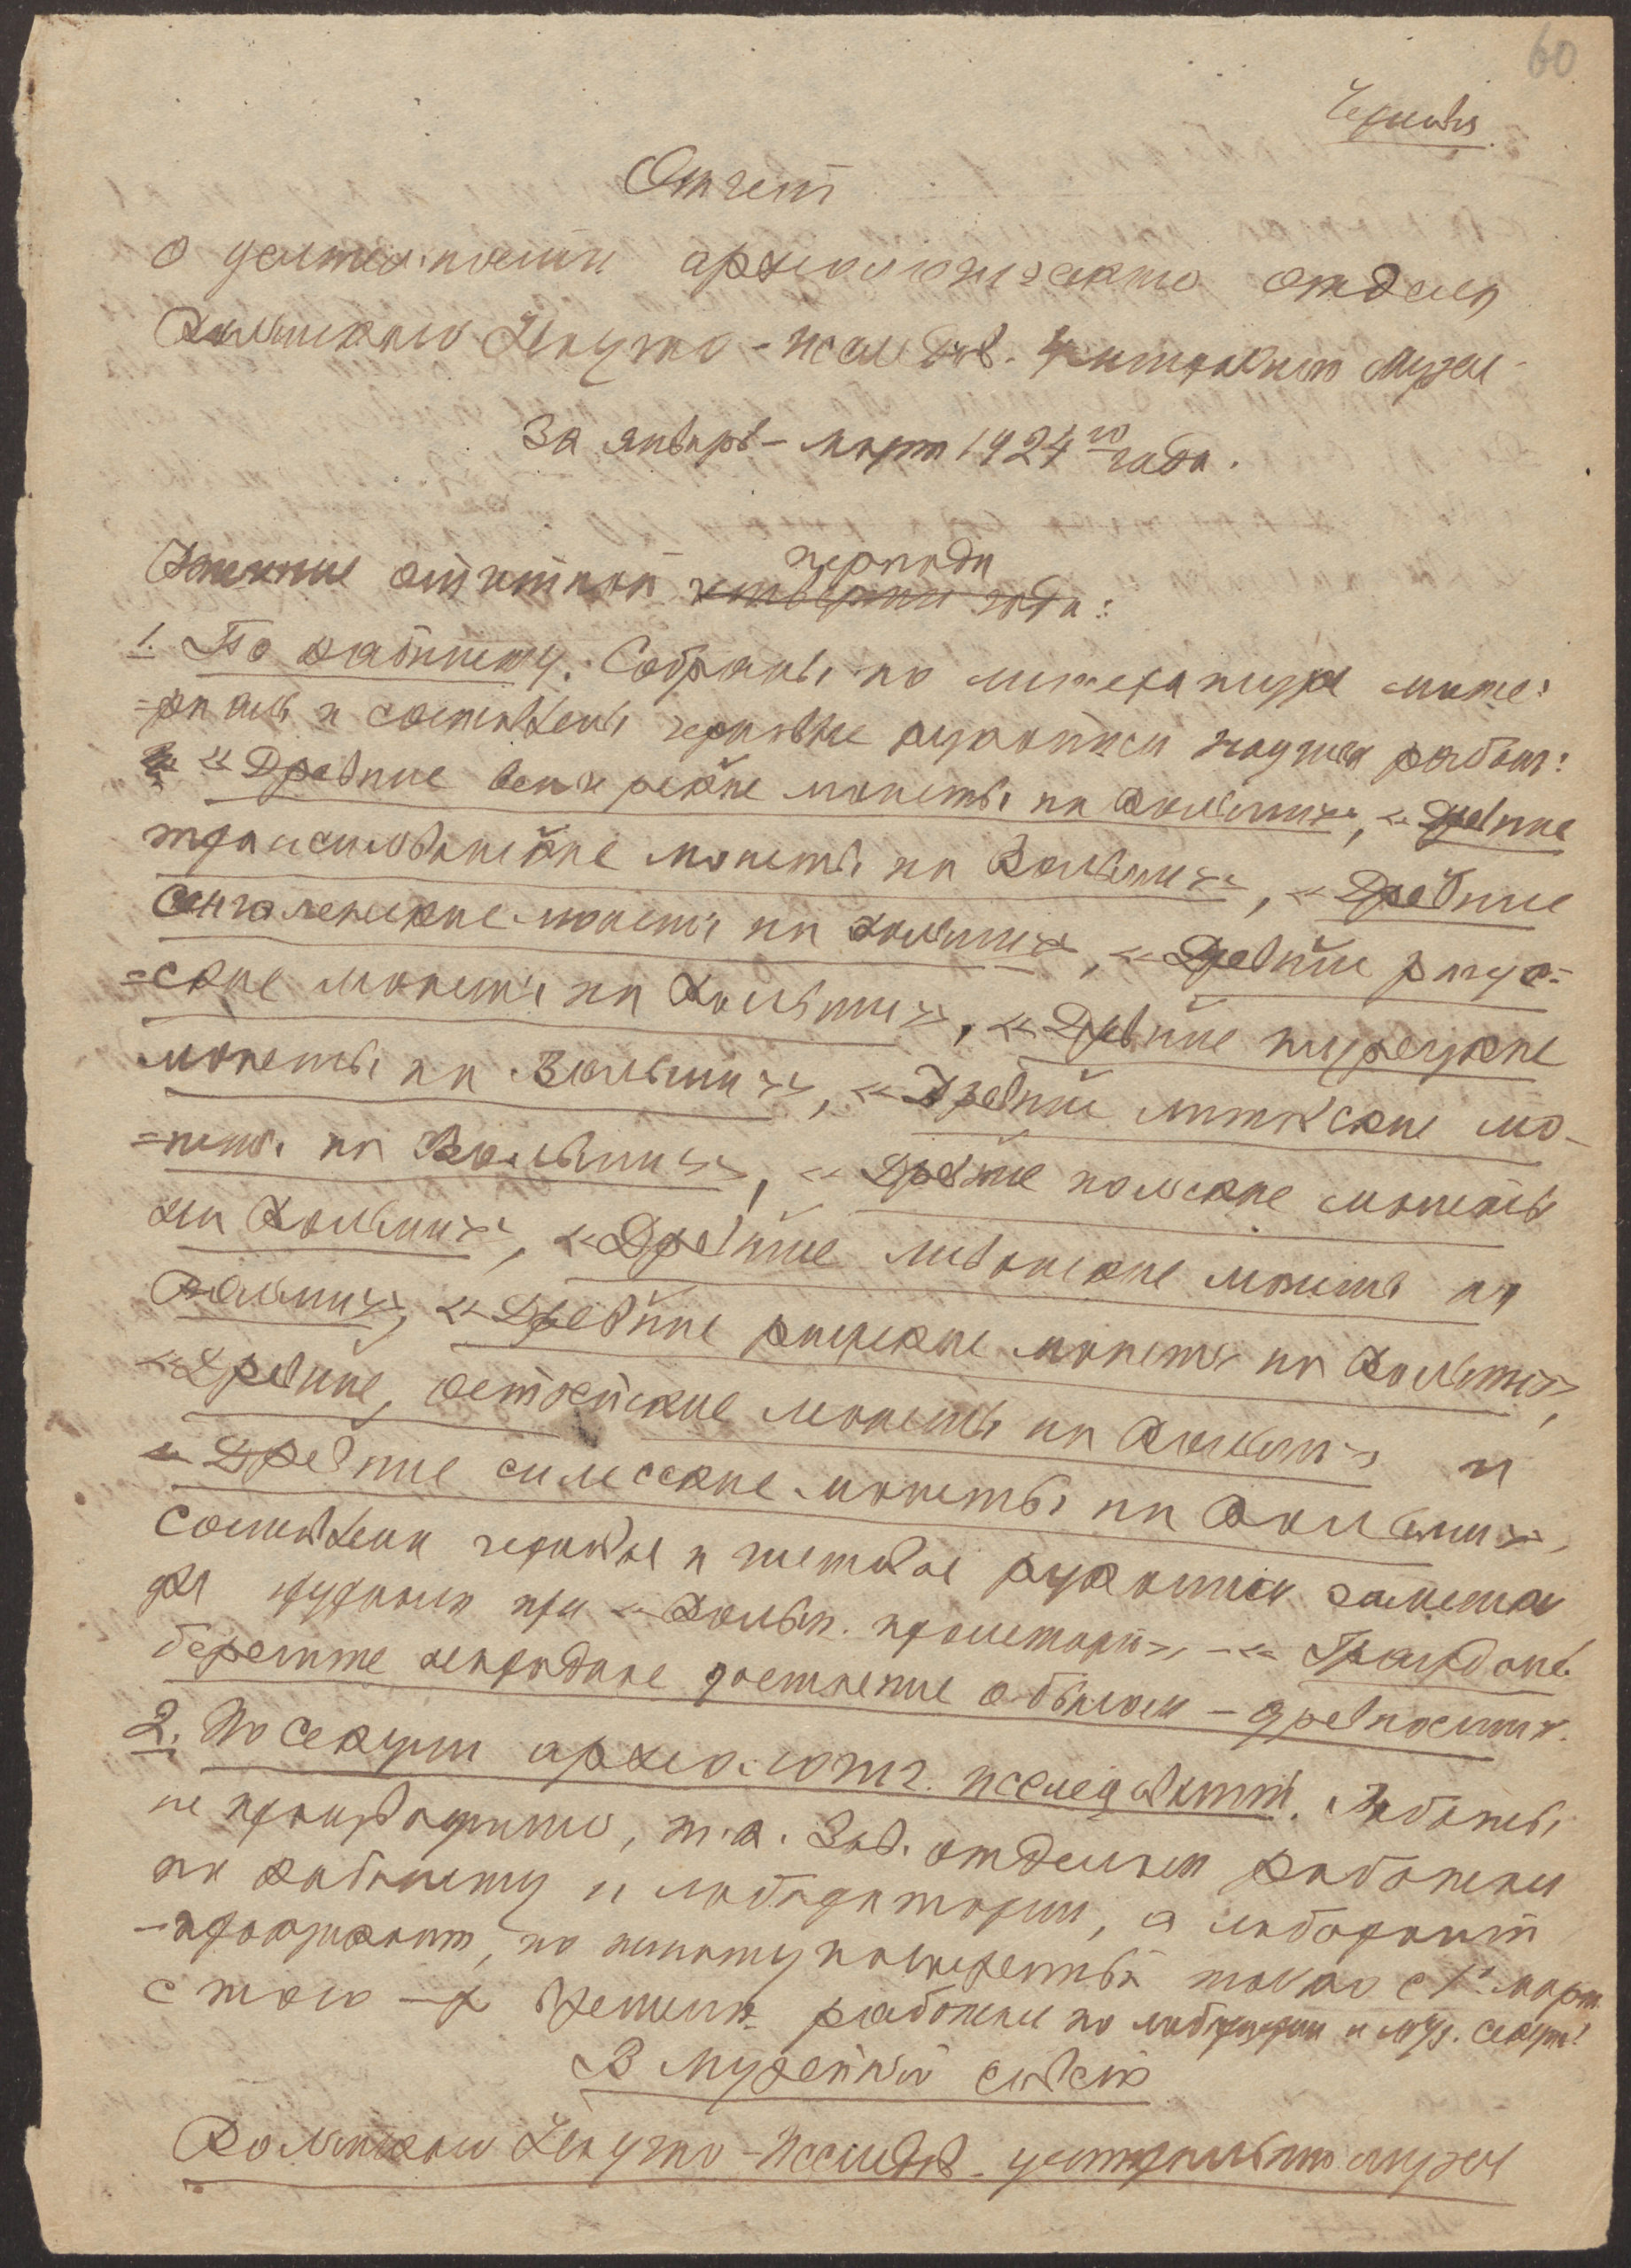 60
Черновик
Отчет
о деятельности археологического отдела
Волынского Научно-исслед. Центрального музея
За январь – март 1924го года.
периода
отчетной четверти года:
1. По кабинету. Собраны по литературе мате=
=риалы и составлены черновые рукописи научных работ:
« Древние венгерские монеты на Волыни », « Древние
трансильванские монеты на Волыни », « Древние
монеты на Волыни », « Древние прус=
=ские монеты на Волыни », « Древние турецкие
монеты на Волыни », « Древние литовские мо-
=неты на Волыни », « Древние польские монеты
на Волыни », « Древние ливонские монеты на
Волыни », « Древние рижские монеты на Волыни »,
« Древние австрийские монеты на Волыни » и
« Древние силезские монеты на Волыни »,
составлена черновая и чистовая рукописи заметки
для журнала при « Волын. пролетарий » – « Граждане.
берегите народное достояние о былом – древности ».
2. По секции археологич. исследований. Работы
не производились, т. к. Зав. отделом работал
по кабинету и лаборатории, а лаборант
по музею только с 1го марта
с того -же времени работал по лаборатории и муз. секции.
В музейный совет
Волынского Научно-Исслед. центрального музея